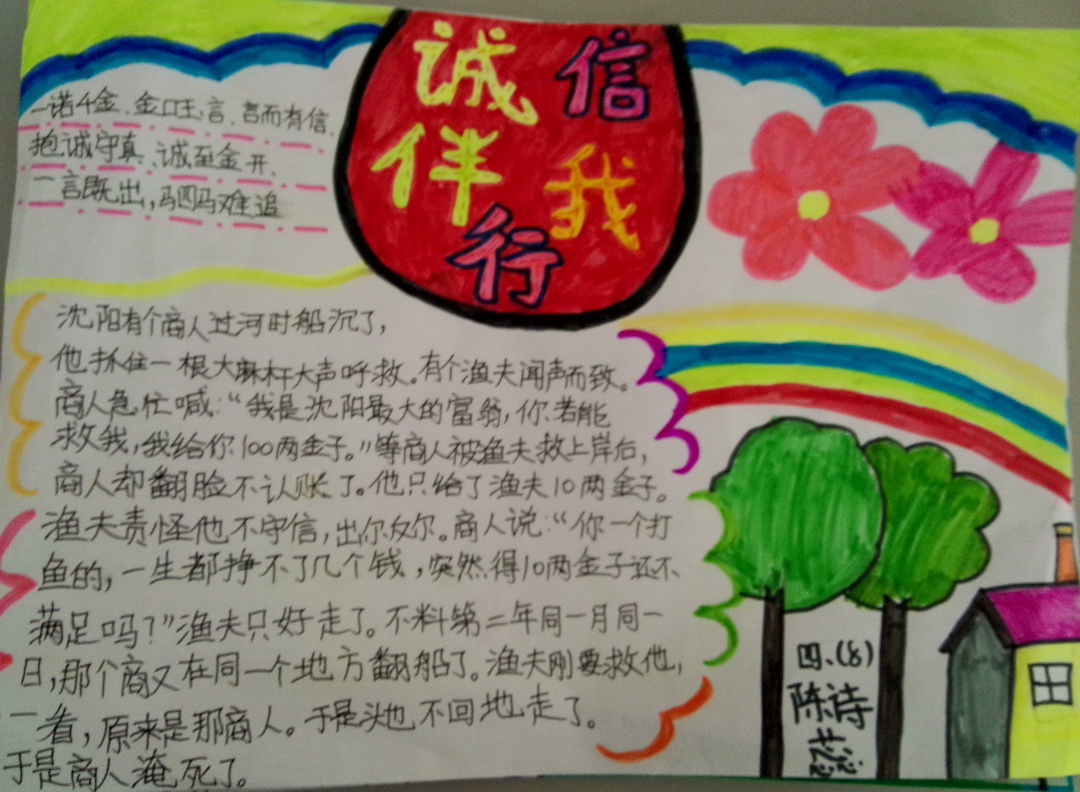 诚信
伴我
行
一诺千金、金口玉言、言而有信、
抱诚守真、诚至金开、
一言既出，驷马难追
沈阳有个商人过河时船沉了，
他抓住一根大麻杆大声呼救。有个渔夫闻声而致。
商人急忙喊：“我是沈阳最大的富翁，你若能
救我，我给你100两金子。”等商人被渔夫救上岸后，
商人却翻脸不认账了。他只给了渔夫10两金子。
渔夫责怪他不守信，出尔反尔。商人说：“你一个打
鱼的，一生都挣不了几个钱，突然得10两金子还不
满足吗？”渔夫只好走了。不料第二年同一月同一
日，那个商又在同一个地方翻船了。渔夫刚要救他，
一看，原来是那商人。于是头也不回地走了。
于是商人淹死了。
四.(8)
陈诗
蕊